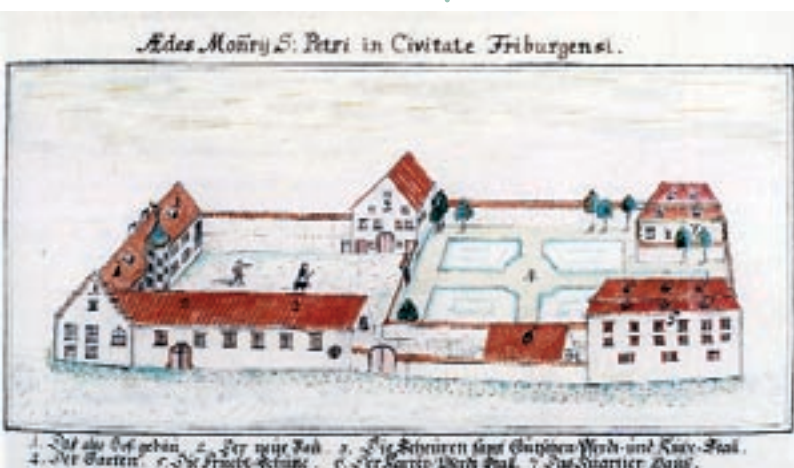 Ædes Moñrij S: Petri in Civitate Friburgensi.
1. Das alte Hof gebäu. 2. Der neue Bau. 3. Die Scheüren sampt Gutschen Pferdt- und Kuhe-Stal.
4. Der Garten. 5. Die Frucht- 6. Der Pferdt Stal. 7. Das Quartier Haus.